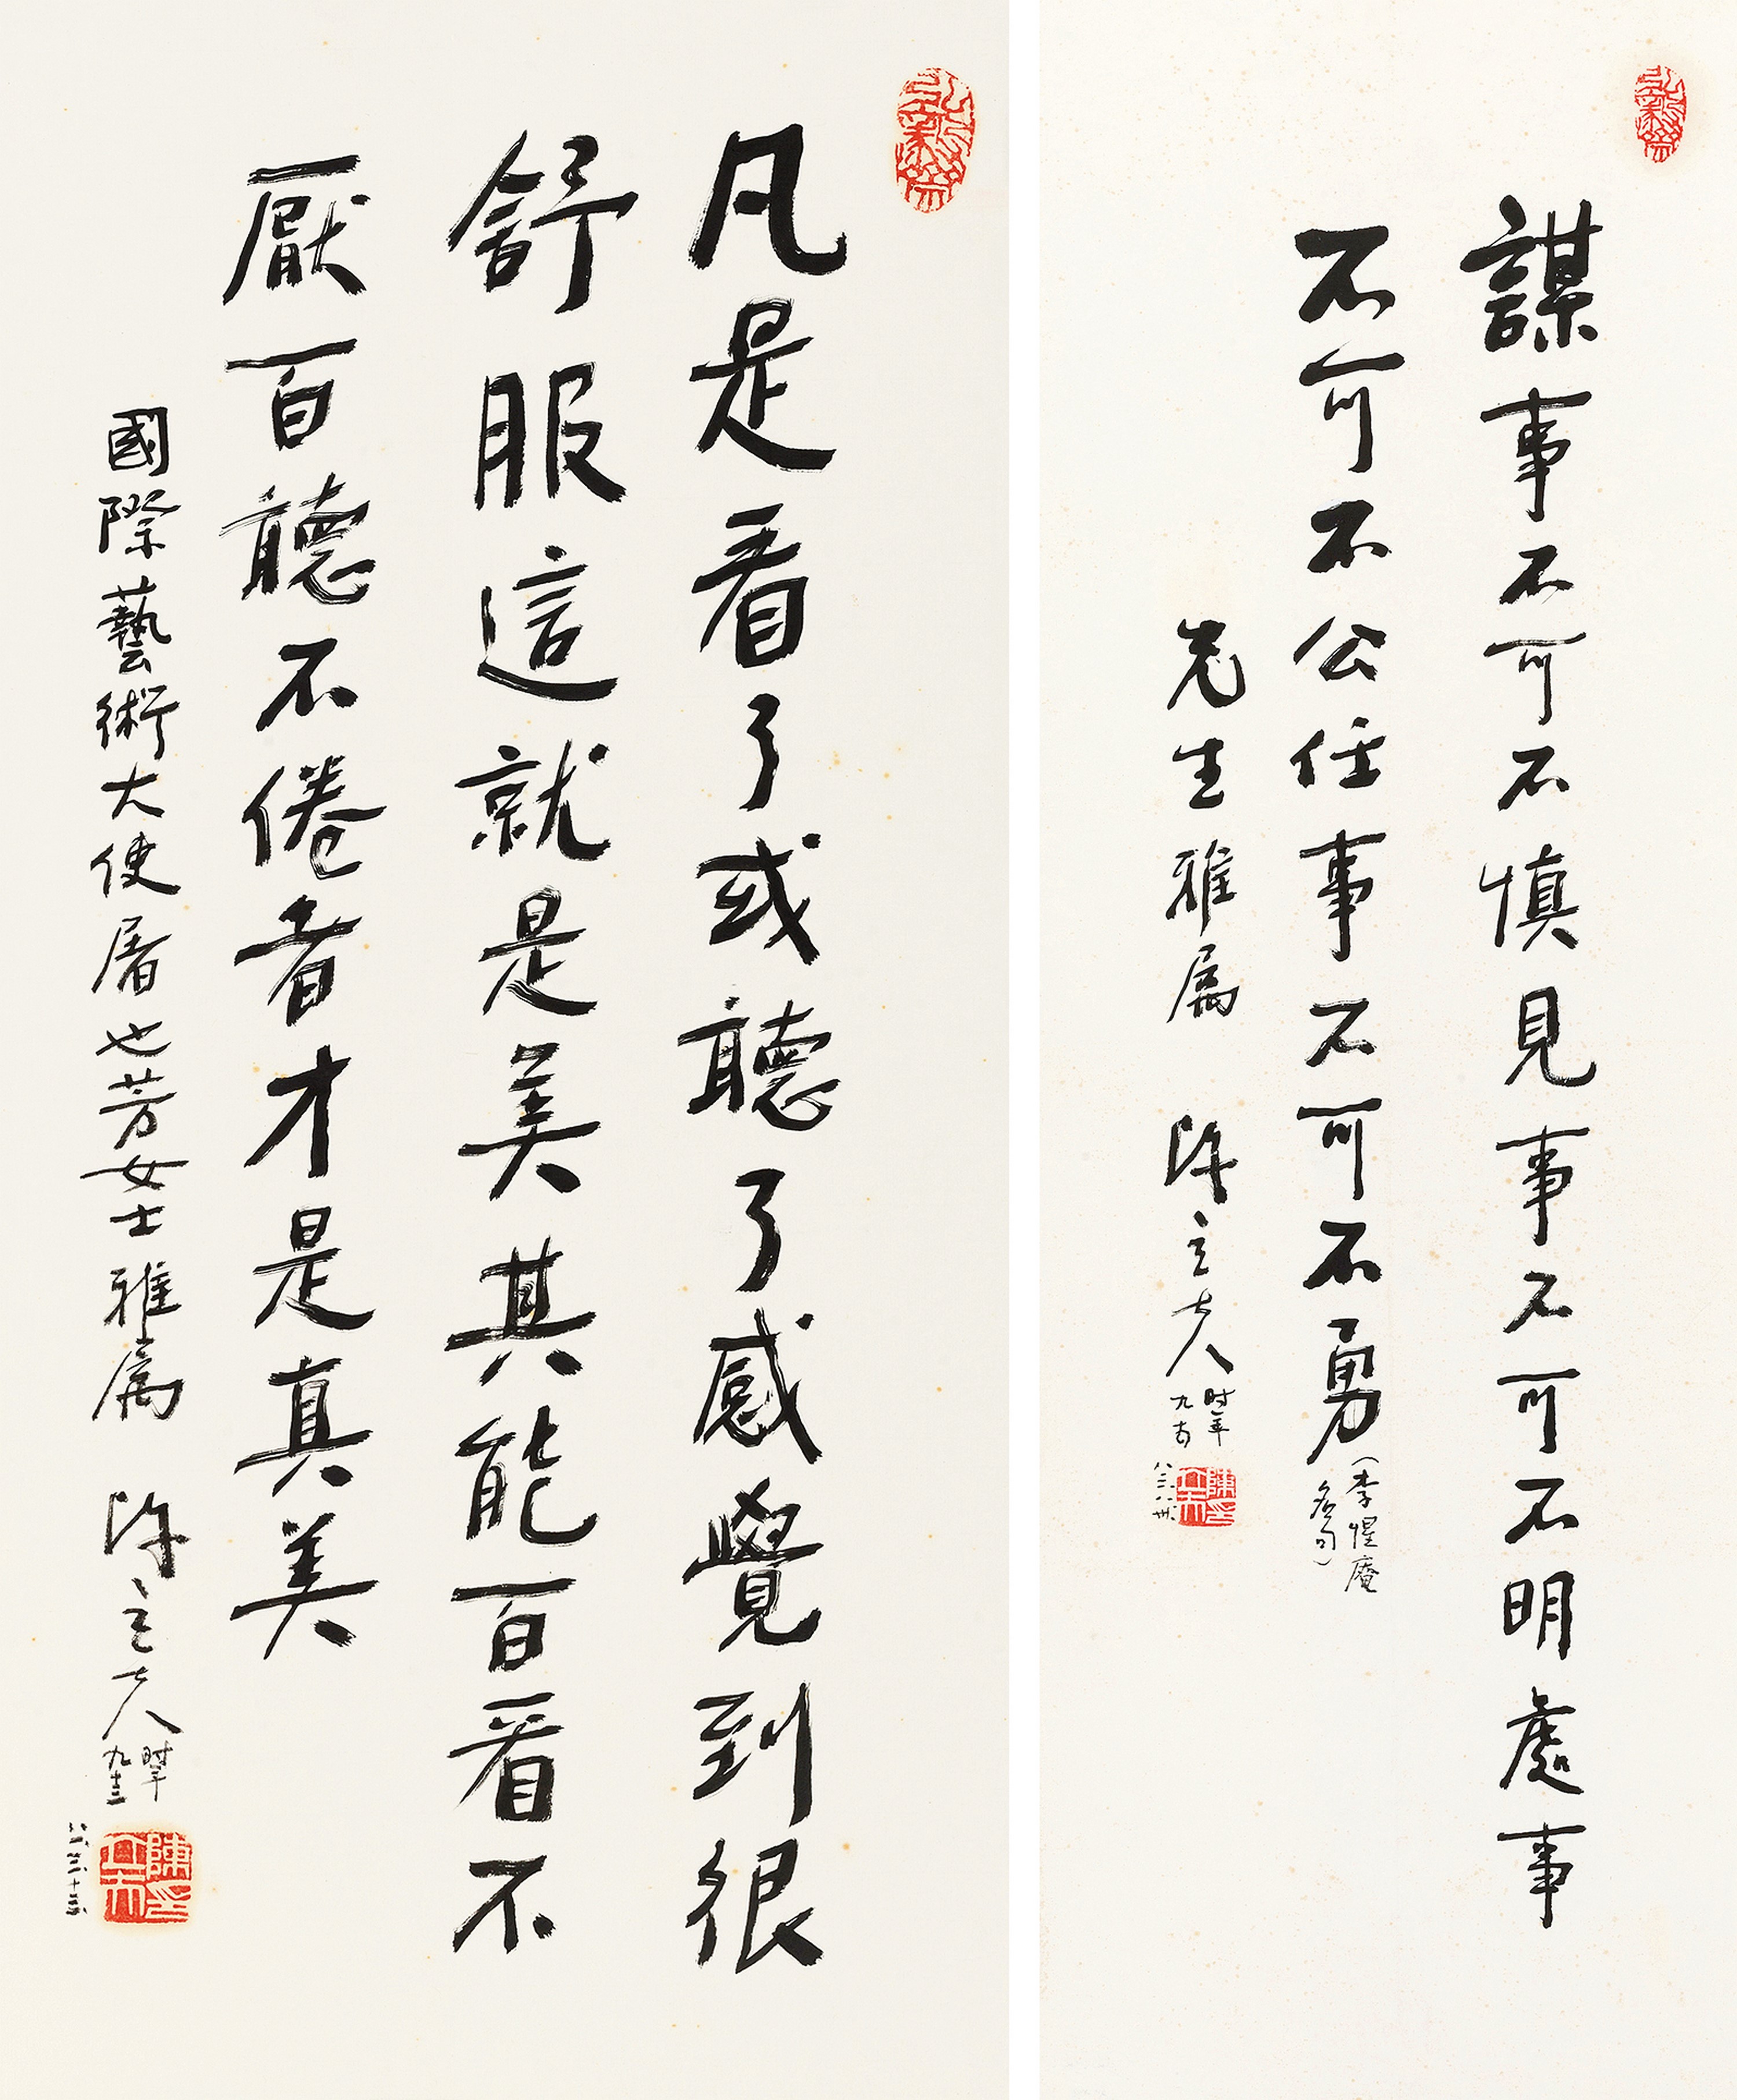 謀事不可不慎見事不可不明處事
不可不公任事不可不勇
(李惺庵
名句)
先生雅属 陳立夫
時年
九十有
凡是看了或聽了感覺到很
舒服這就是美其能百看不
厭百聽不倦者才是真美
國際藝術大使屠也芳女士雅属 陳立夫
時年
九十三
陳立夫印